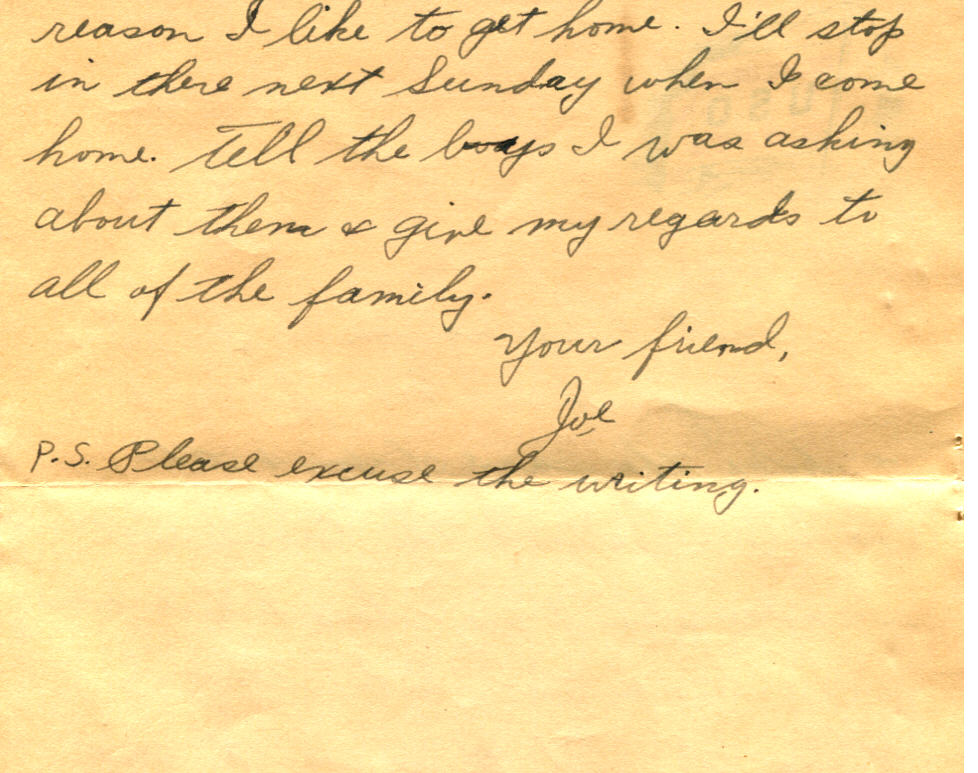 reason I like to get home. I'll stop
in there next Sunday when I come
home. Tell the boys I was asking
about them & give my regards to
all of the family.
Your friend,
Joe
P.S. Please excuse the writing.